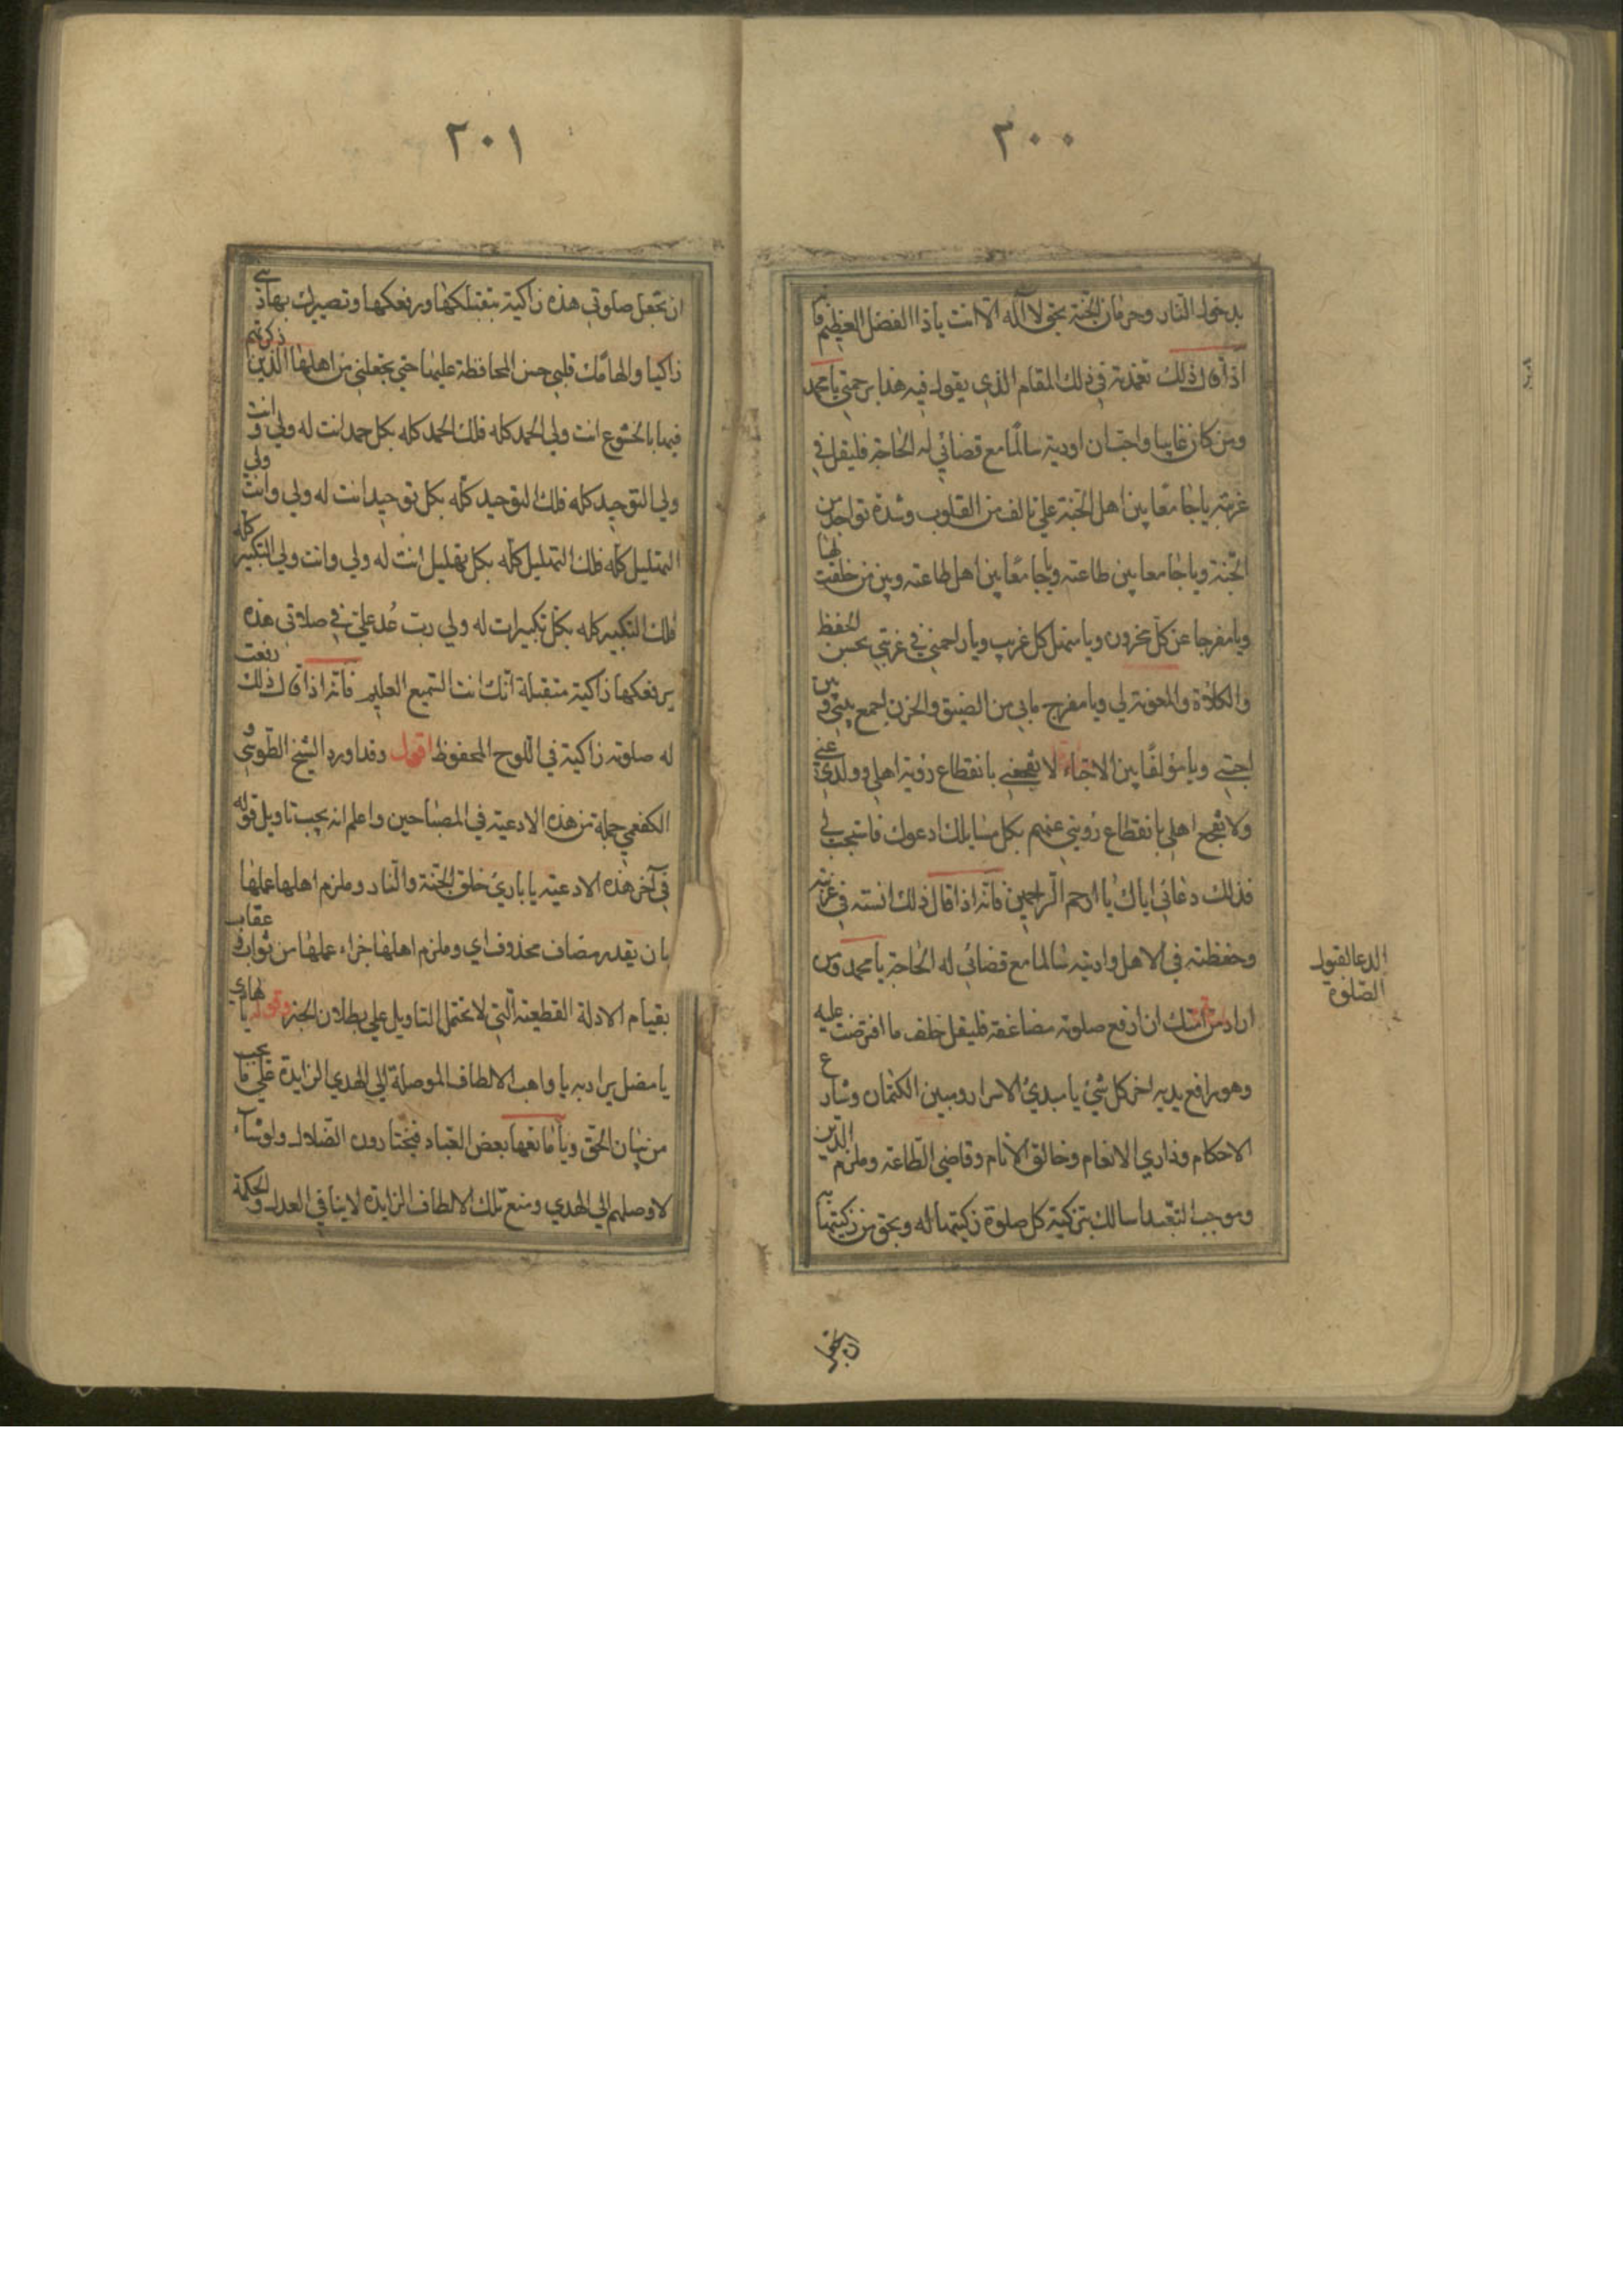 ٢٠٠
بدخول النار وحرمان الجنة بحق لا اله الا انت ياذا الفضل العظيم فانه
اذا قال ذلك تغمدته في ذلك المقام الذي يقول فيه هذا برحمتي يا محمد
ومن كان غايبا واحب ان اوديه سالما مع قضائي له الحاجة فليقل في
غربته يا جامعا بين اهل الجنة علي تالف من القلوب وشدة تواجد من
الجنة ويا جامعا بين طاعته ويا جامعا بين اهل طاعته وبين من خلقت لها
ويا مفرجا عن كل محزون ويا منهل كل غريب ويا راحمني في غربتي بحسن الحفظ
والكلاءة والمعونة لي ويا مفرج مابي من الضيق والحزن اجمع بيني وبين
احبتي ويا مؤلفا بين الاحباء لا تفجعني بانقطاع رؤية اهلي وولدي عني
ولا تفجع اهلي بانقطاع رؤيتي عنهم بكل مسايلك ادعوك فاستجب لي
فذلك دعائي اياك يا ارحم الراحمين فانه اذا قال ذلك انسته في غربته
وحفظته في الاهل واديته سالما مع قضائي له الحاجة يا محمد ومن
اراد من امتك ان ارفع صلوته مضاعفة فليقل خلف ما افترضت عليه
وهو رافع يديه اخر كل شئ يا مبدئ الاسرار ومبين الكتمان وشارع
الاحكام وذاري الانعام وخالق الانام وقاضي الطاعة وملزم الدين
وموجب التعبد اسالك بتزكية كل صلوة زكيتها له وبحق من زكيتها
الدعا لقبول
الصلوة
ان تجعل
٢٠١
ان تجعل صلوتي هذه زاكية بتقبلكها ورفعكها وتصييرك بها ديني
زاكيا والهامك قلبي حسن المحافظة عليها حتي تجعلني من اهلها الذين ذكرتهم
فيها بالخشوع انت ولي الحمد كله فلك الحمد كله بكل حمد انت له ولي وانت
ولي التوحيد كله فلك التوحيد كله بكل توحيد انت له ولي وانت ولي
التهليل كله فلك التهليل كله بكل تهليل انت له ولي وانت ولي التكبير كله
فلك التكبير كله بكل تكبير انت له ولي رب عد علي في صلاتي هذه
برفعكها زاكية متقبلة انك انت السميع العليم فانه اذا قال ذلك رفعت
له صلوته زاكية في اللوح المحفوظ اقول وقد اورد الشيخ الطوسي و
الكفعمي جملة من هذه الادعية في المصباحين واعلم انه يجب تاويل قوله
في آخر هذه الادعية يا باري خلق الجنة والنار وملزم اهلها عملها
بان يقدر مضاف محذوف اي وملزم اهلها جزاء عملها من ثواب او عقاب
بقيام الادلة القطعية التي لا تحتمل التاويل علي بطلان الجبر وقوله يا هادي
يا مضل يراد به يا واهب الالطاف الموصلة الي الهدي الزايدة علي ما يجب
من بيان الحق ويا مانعها بعض العباد فيختارون الضلال ولو شآء
لاوصلهم الي الهدي ومنع تلك الالطاف الزايدة لا ينافي العدل والحكمة